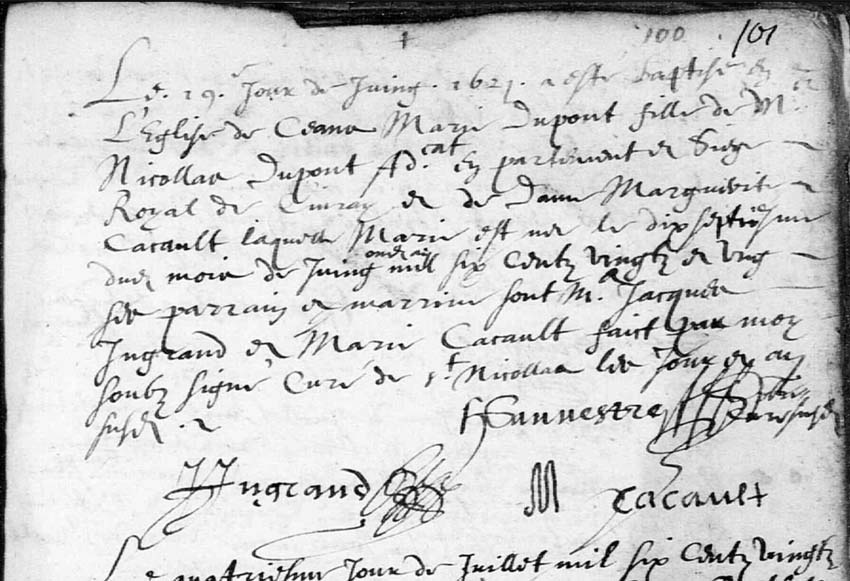 100 . 101
Le . 19.e Jour de Juing . 1621 . a esté baptisé en
L'Eglise de Ceans Marie Dupont fille de M.e
Nicollas Dupont Ad.cat en parlement et Siege
Royal de Civray et de Dame Marguirite
Cacault laquelle Marie est nee le dixseptiesme
dud moie de Juing mil six Centz vingtz et ung
Ses parrain et marrine sont M.e Jacques
Ingrand et Marie Cacault faict par moy
soubz signé Curé de S.t Nicollas les Jour et an
susd .
Sauvestre
Ingrand M Cacault
Le quatriesme Jour de Juillet mil six Centz vingtz